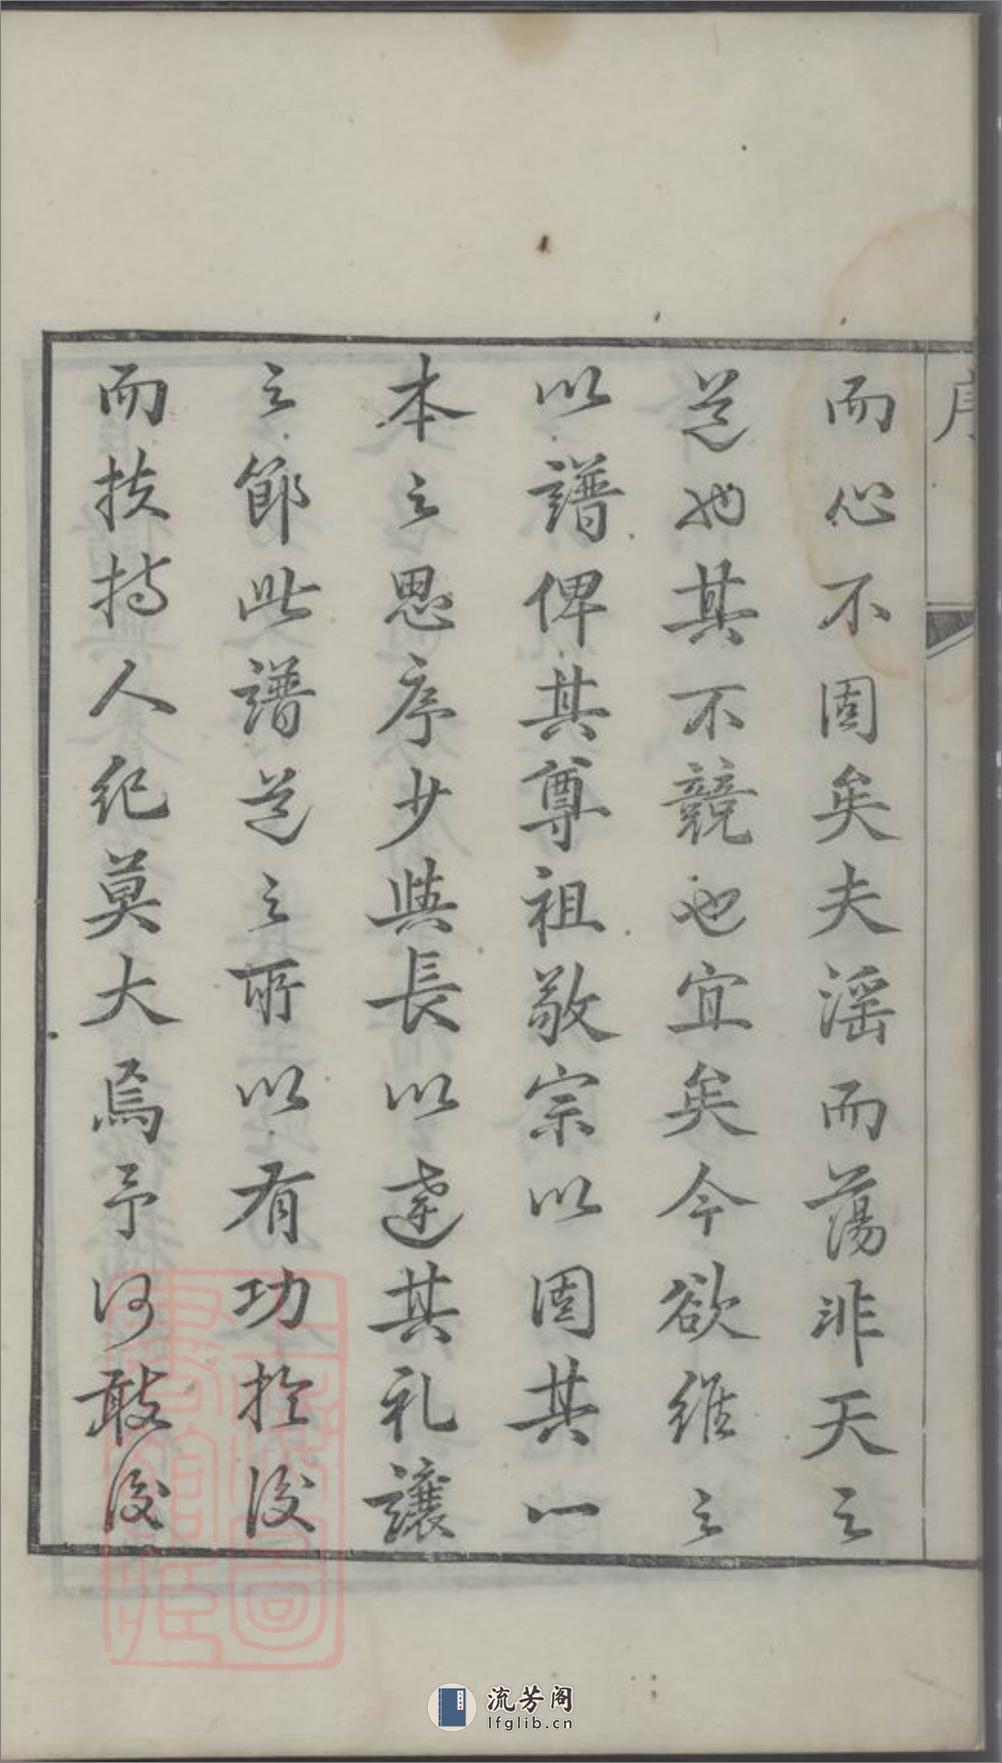 序
而心不固矣夫淫而蕩非天之
道也其不競也宜矣今欲維之
以譜俾其尊祖敬宗以固其一
本之思序少與長以達其礼讓
之節此譜道之所以有功於後
而扶持人紀莫大焉予何敢後
流芳阁
lfglib.cn